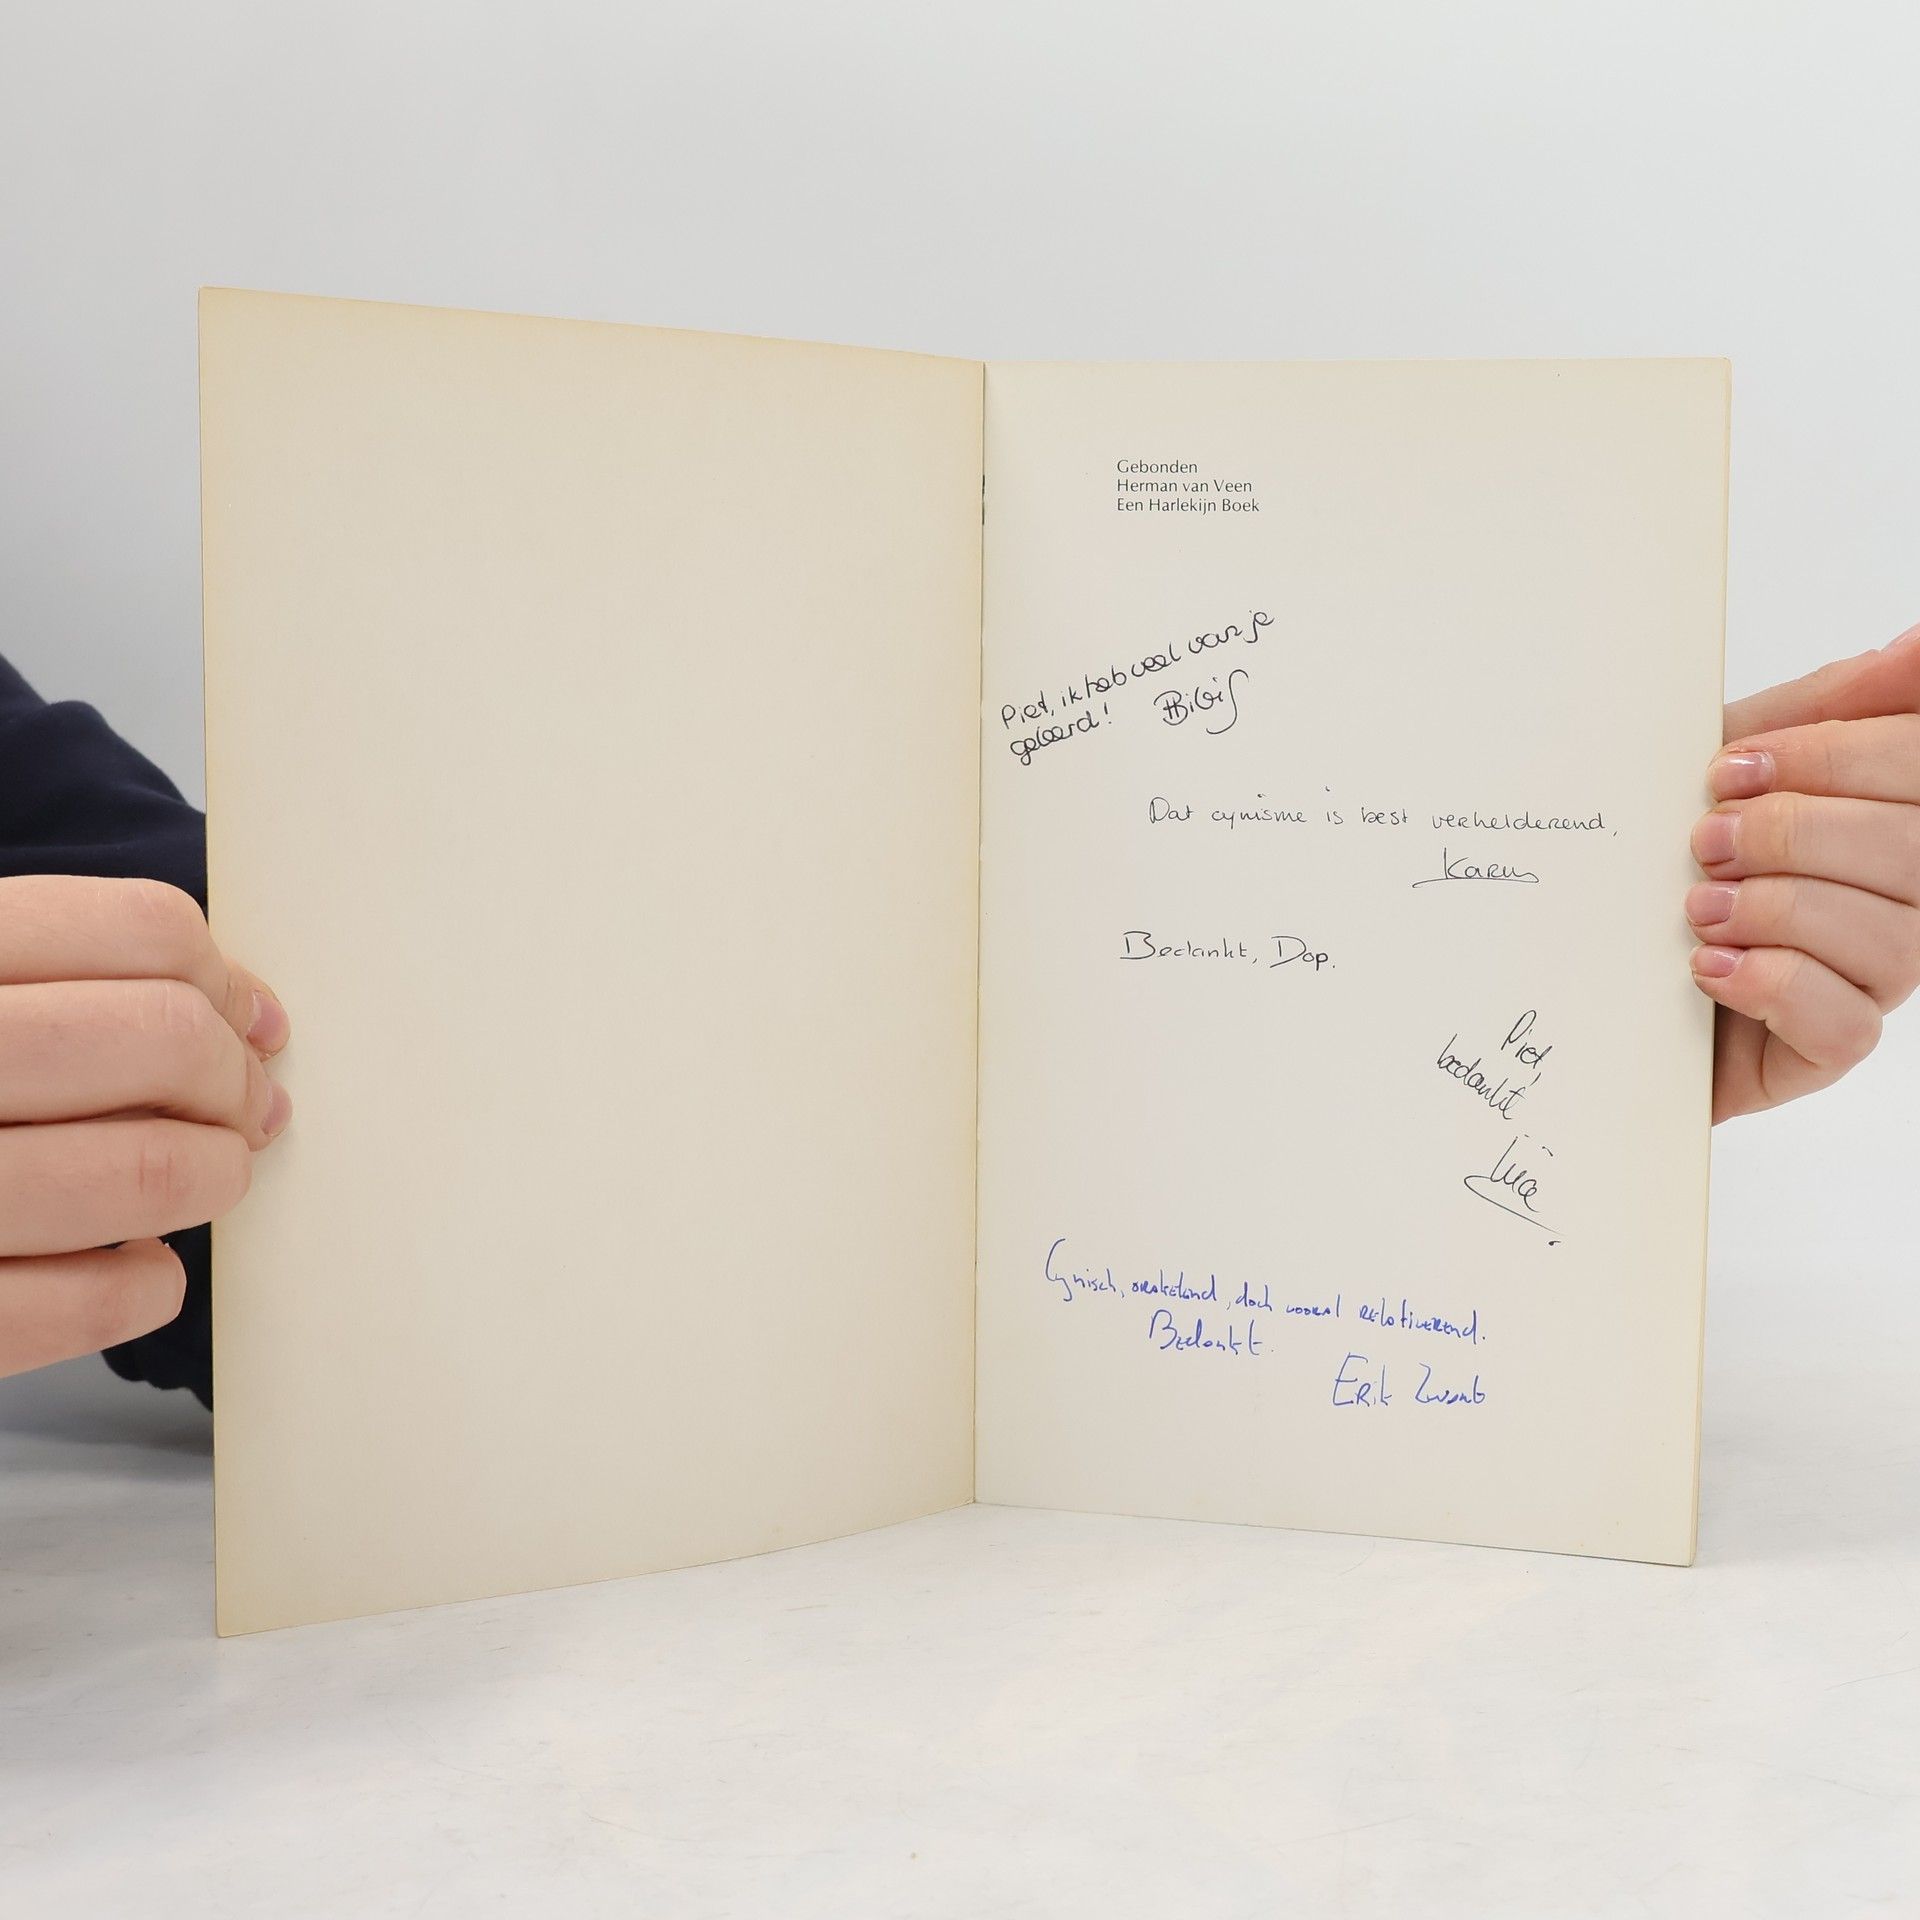 Gebonden
Herman van Veen
Een Harlekijn Boek
Piet, ik heb veel van je
geleerd!
Dat cynisme is best verhelderend,
Karin
Bedankt, Dop.
Piet,
bedankt
Cynisch, orakelend, doch vooral relativerend.
Bedankt.
Erik